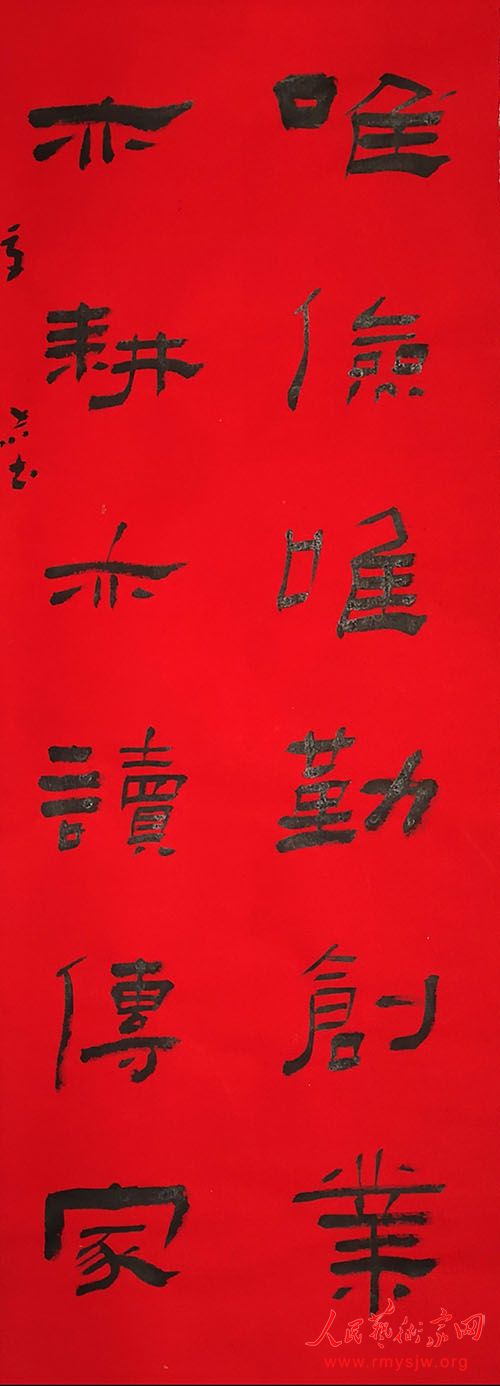 唯儉唯勤創業
亦耕亦讀傳家
人民藝術家网
www.rmysjw.org